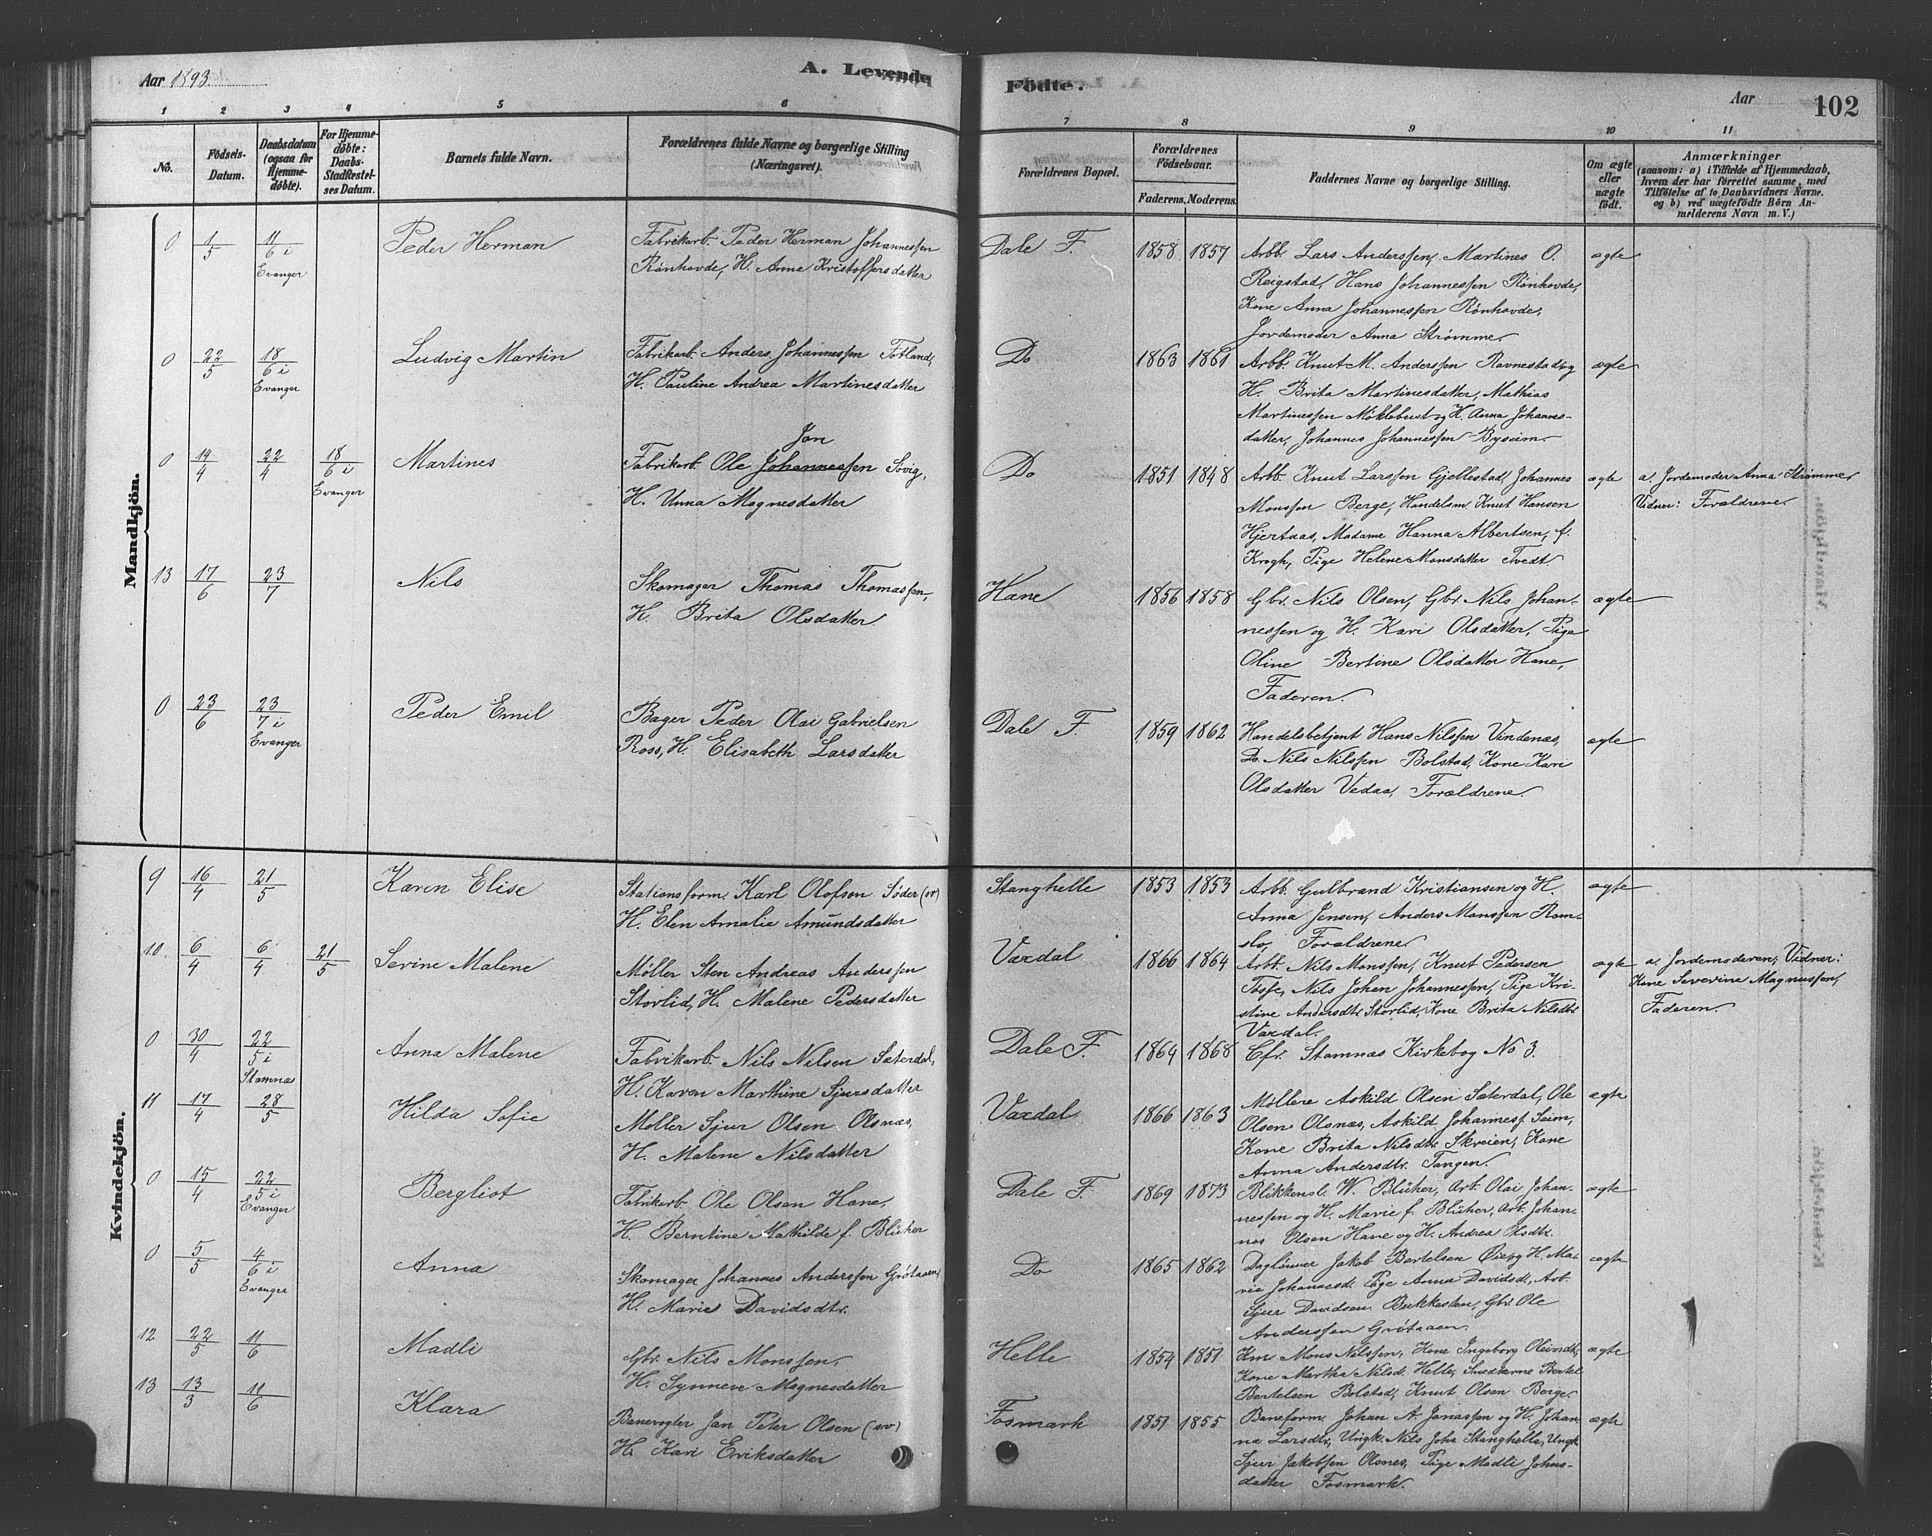 Aar 1893
A. Levende Födte.
Aar
102
1 2 3 4 5 6 7 8 9 10 11
No.
Födsels-
Datum.
Daabsdatum
(ogsaa for
Hjemme-
döbte).
For Hjemme-
döbte:
Daabs-
Stadfæstel-
ses Datum.
Barnets fulde Navn.
Forældrenes fulde Navne og borgerlige Stilling
(Næringsvei).
Forældrenes Bopæl.
Forældrenes
Födselsaar.
Faderens. Moderens.
Faddernes Navne og borgerlige Stilling.
Om ægte
eller
uægte
födt.
Anmærkninger
(saasom: a) i Tilfælde af Hjemmedaab,
hvem der har forrettet samme, med
Tilföielse af to Daabsvidners Navne.
og b) ved uægtefödte Börn An-
melderens Navn m. V.)
Mandkjön.
0 1/5 11/6 i Evanger
Peder Herman
Fabrikarb. Peder Herman Johannessen
Rønhovde, H. Anna Kristoffersdatter
Dale F. 1858 1857
Arbb. Lars Anderssen, Martines O.
Reigstad, Hans Johannessen Rønhovde,
Kone Anna Johannessen Rønhovde,
Jordemoder Anna Strømme
ægte
0 22/5 18/6 i Evanger
Ludvig Martin
Fabrikarb. Anders Johannessen Totland,
H. Pauline Andrea Martinesdatter
Do 1863 1861
Arbb. Knut M. Anderssen Ravnestad og
H. Brita Martinesdatter, Mathias
Martinessen Møklebust og H. Anna Johannes-
datter, Johannes Johannessen Byseim
ægte
0 14/4 22/4 18/6 i Evanger
Martines
Jon
Fabrikarb. Ole Johannessen Sovig,
H. Unna Magnesdatter
Do 1851 1848
Arbb. Knut Larssen Gjellestad, Johannes
Monssen Berge, Handelsm. Knut Hansen
Hjertaas, Madame Hanna Albertsen, f.
Krogh, Pige Helene Monsdatter Tvedt
ægte
a. Jordemoder Anna Strømme
Vidner: Forældrene
13 17/6 23/7
Nils
Skomager Thomas Thomassen,
H. Brita Olsdatter
Hane 1856 1858
Gbr. Nils Olsen, Gbr. Nils Johan-
nessen og H. Kari Olsdatter, Pige
Oline Bertine Olsdatter Hane,
Faderen.
ægte
0 23/6 23/7 i Evanger
Peder Emil
Bager Peder Olai Gabrielsen
Ross, H. Elisabeth Larsdatter
Dale F. 1859 1862
Handelsbetjent Hans Nilssen Vindenæs,
Do Nils Nilssen Bolstad, Kone Kari
Olsdatter Vedaa, Forældrene.
ægte
Kvindekjön.
9 16/4 21/5
Karen Elise
Stationsform. Karl Olofson Söder (sv)
H. Elen Amalie Amundsdatter
Stanghelle 1853 1853
Arbb. Gulbrand Kristiansen og H.
Anna Jensen, Anders Monssen Rom-
slo, Forældrene
ægte
10 6/4 6/4 21/5
Serine Malene
Møller Sten Andreas Anderssen
Storlid, H. Malene Pedersdatter
Vaxdal 1866 1864
Arbb. Nils Monssen, Knut Pedersen
Tosse, Nils Johan Johannessen, Pige Kri-
stine Andersdtr Storlid, Kone Brita Nilsdtr
Vaxdal.
ægte
a. Jordemoderen, Vidner:
Kone Severine Magnussen,
Faderen.
0 30/4 22/5 i Stamnæs
Anna Malene
Fabrikarb. Nils Nilsen Sæterdal,
H. Karen Marthine Sjursdatter
Dale F. 1864 1868
Cfr. Stamnæs Kirkebog No 3.
11 17/4 28/5
Hilda Sofie
Møller Sjur Olsen Olsnæs,
H. Malene Nilsdatter
Vaxdal 1866 1863
Møllere Askild Olsen Sæterdal, Ole
Olsen Olsnæs, Askild Johanness. Seim,
Kone Brita Nilsdtr Skreien, Kone
Anna Andersdtr. Tangen.
ægte
0 15/4 22/5 i Evanger
Bergliot
Fabrikarb Ole Olsen Hane,
H. Berntine Mathilde f. Blüher
Dale F. 1869 1873
Blikkensl. W. Blüher, Arb. Olai Johan-
nessen og H. Marie f. Blüher, Arb. Johan-
nes Olsen Hane og H. Andrea Olsdtr.
ægte
0 5/5 4/6 i Evanger
Anna
Skomager Johannes Anderssen Grötaaen,
H. Marie Davidsdtr.
Do 1865 1862
Daglönner Jakob Bertelsen Öie og H. Ma-
rie Johannesd. Pige Anna Davidsd., Arb.
Sjur Davidsen Bukkesten, Gbr. Ole
Anderssen Grötaaen.
ægte
12 22/5 11/6
Madli
Gbr. Nils Monssen,
H. Synneve Magnesdatter
Helle 1854 1851
Km. Mons Nilssen, Kone Ingeborg Oleivdtr,
Kone Martha Nilsd. Helle, Snedkerne Bertel
Bertelsen Bolstad, Knut Olsen Berge
ægte
13 13/3 11/6
Klara
Banevogter Jan Peter Olsen (sv)
H. Kari Eriksdatter
Fosmark 1851 1855
Baneform. Johan A. Jonassen og H. Johan-
na Larsdtr, Ungk. Nils Johs. Stanghelle, Ungk.
Sjur Jakobsen Olsnes, Pige Madli Johns-
datter Fosmark.
ægte